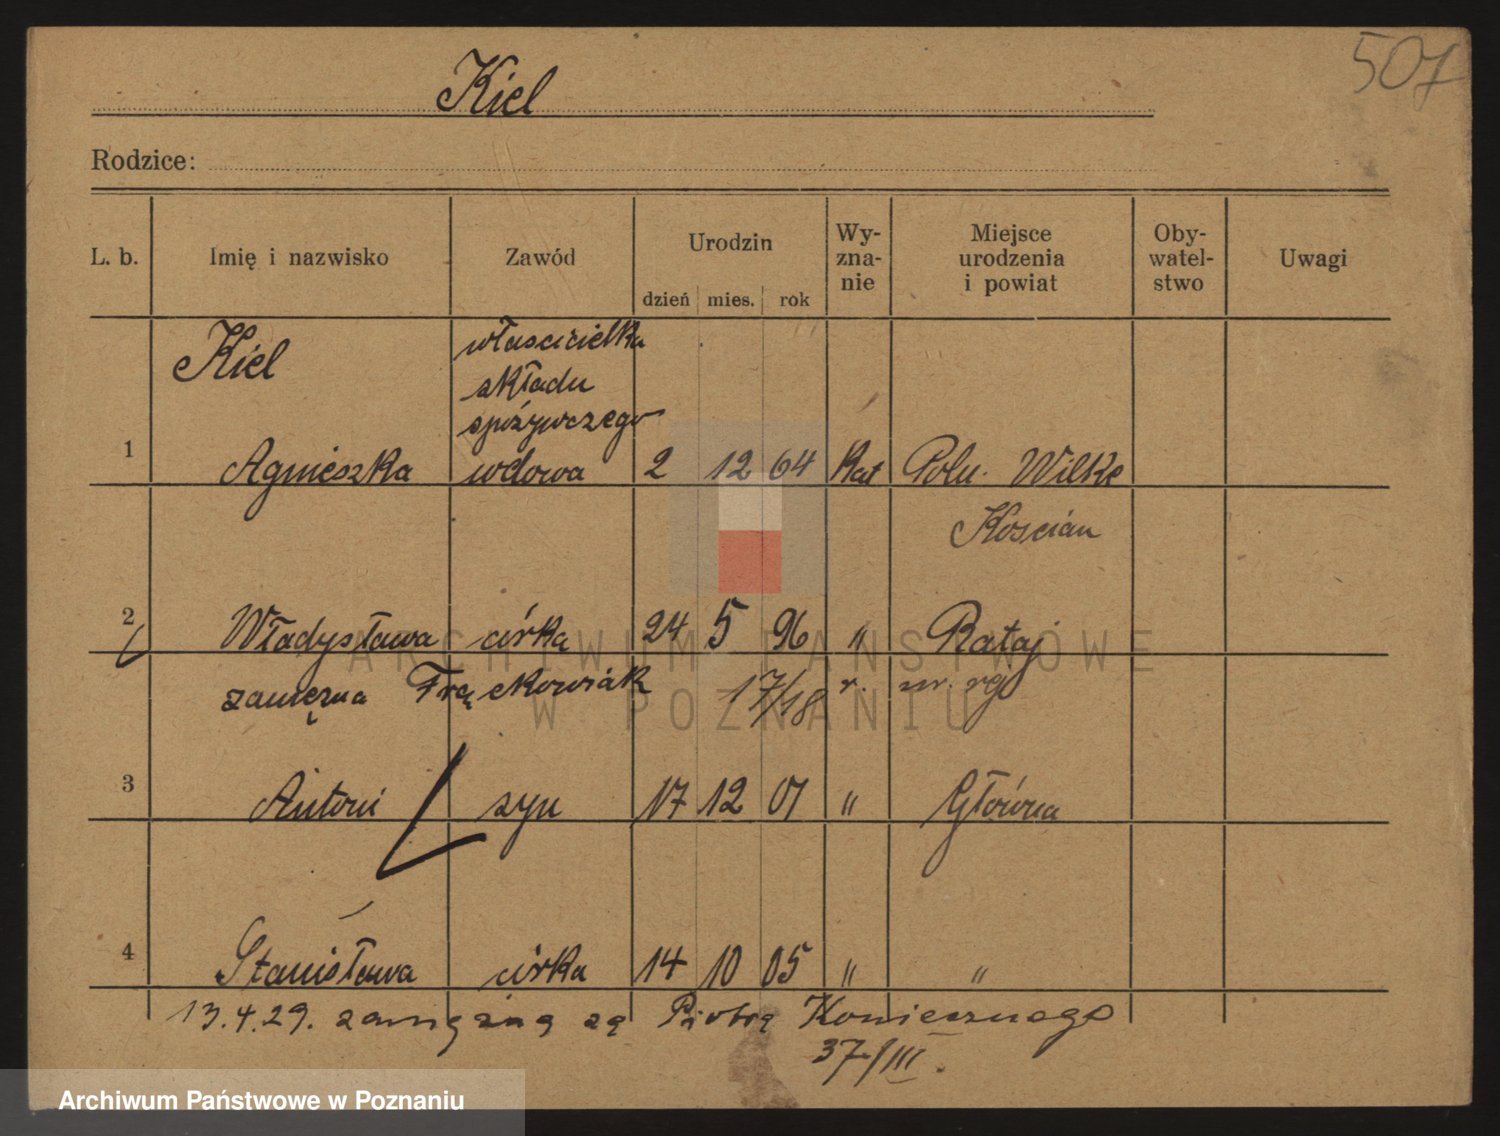 507
Kiel
Rodzice:
L. b. Imię i nazwisko Zawód Urodzin dzień mies. rok Wy-zna-nie Miejsce urodzenia i powiat Oby-watel-stwo Uwagi
Kiel właścicielka
składu
spożywczego
1 Agnieszka wdowa 2 12 64 Kat Poln. Wilke
Kościan
2 Władysława córka 24 5 96 " Rataj
zamężna Frąckowiak 17/18 r.
3 Antoni syn 17 12 01 " Główna
4 Stanisława córka 14 10 05 " "
13.4.29. zamężna za Piotra Koniecznego
37/III.
ARCHIWUM PAŃSTWOWE
W POZNANIU
Archiwum Państwowe w Poznaniu